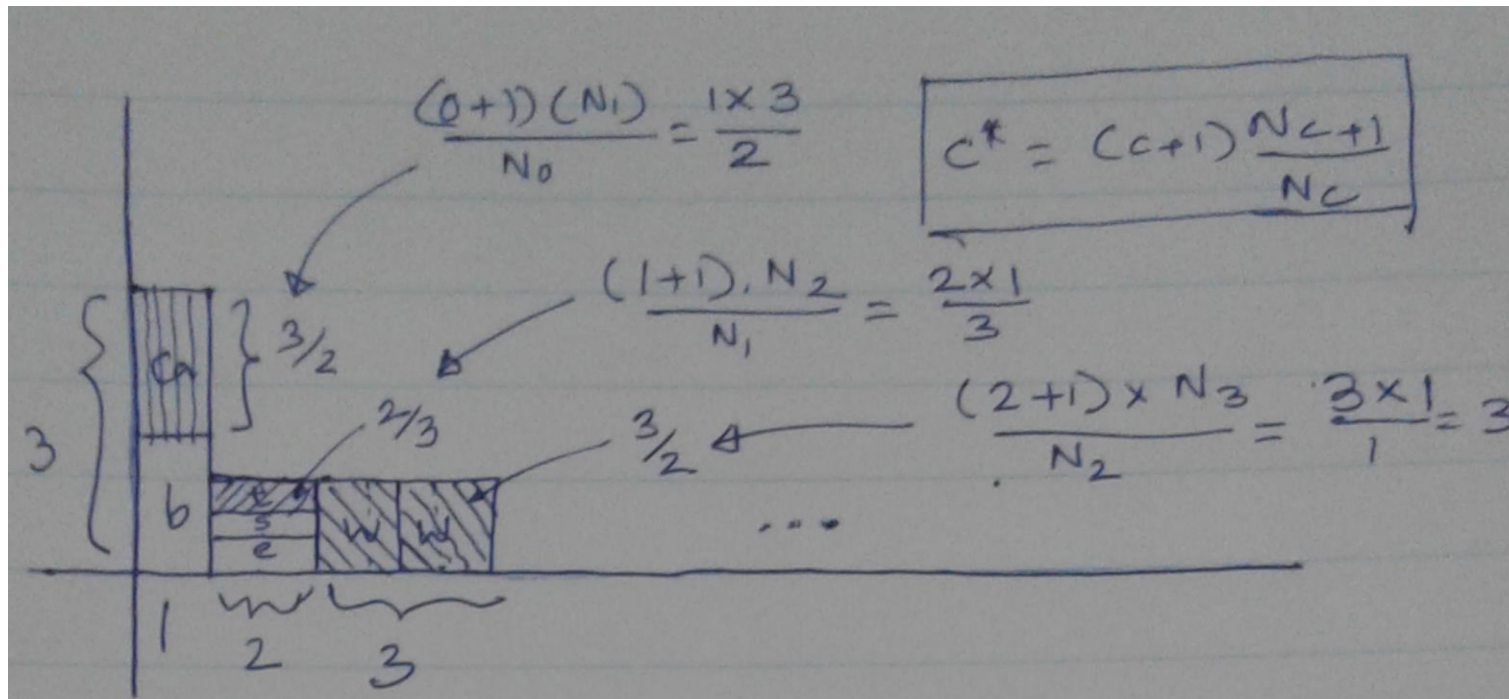 (0+1)(N₁)/N₀ = 1×3/2
C* = (c+1) N_{c+1}/N_c
(1+1).N₂/N₁ = 2×1/3
3/2
2/3
(2+1)×N₃/N₂ = 3×1/1 = 3
3/2
3
b
t
s
e
W W
...
1
2
3